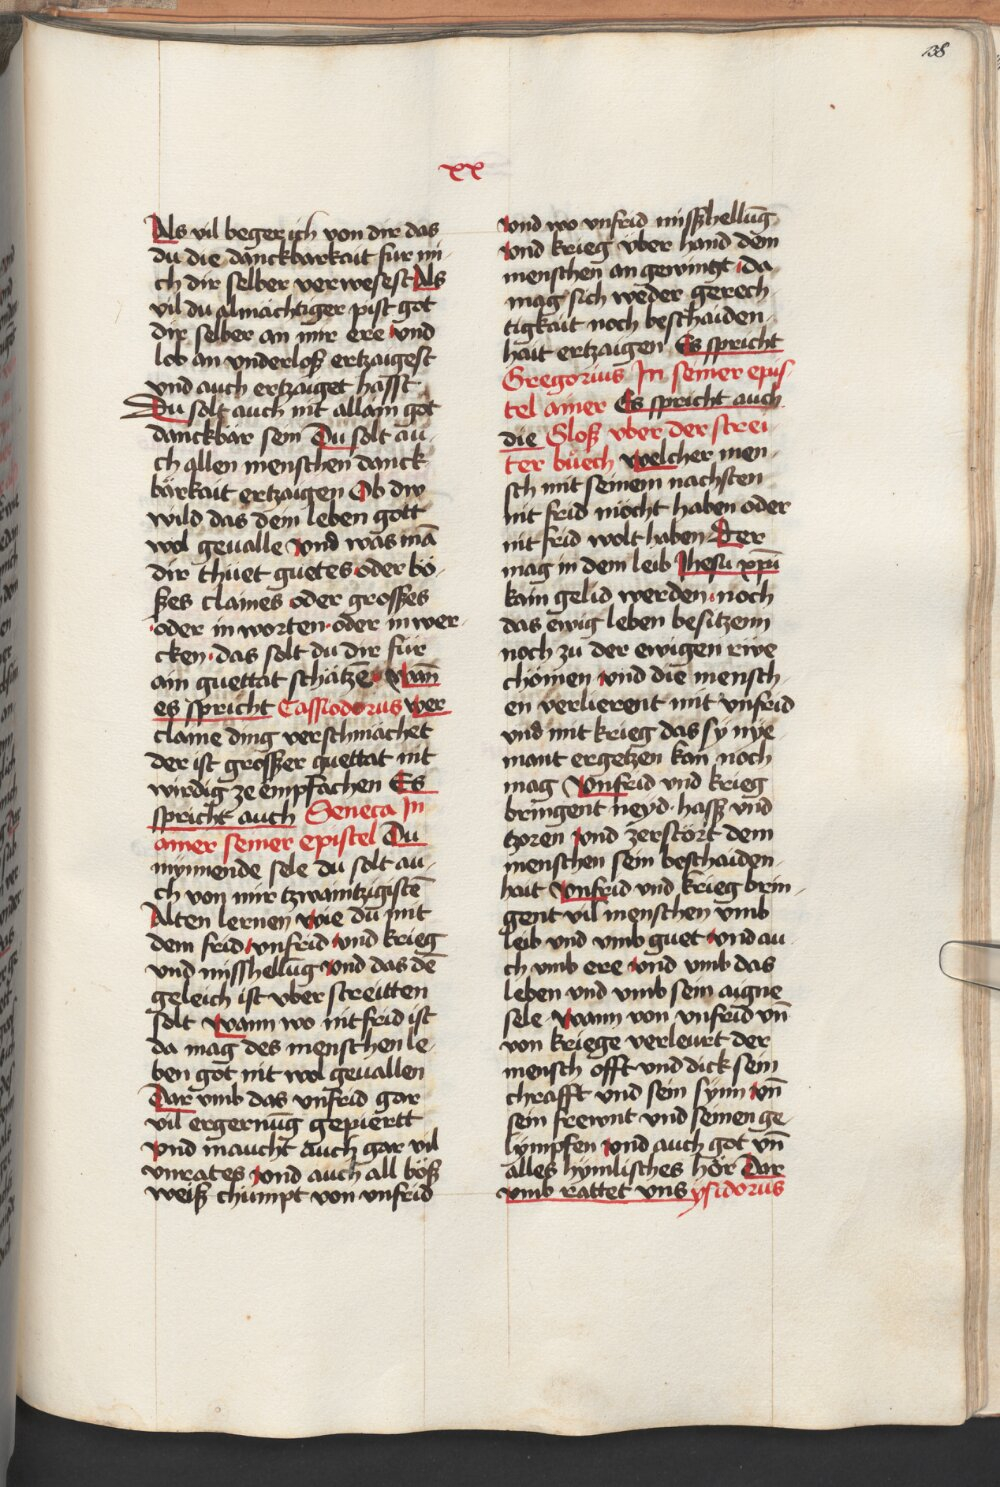 138
xx
Als vil beger ich von dir das
du die danckbarkait für mi
ch dir selber verwesest Als
vil du almächtiger pist got
dir selber an mir ere vnd
lob an vnderloß ertzaigest
vnd auch ertzaiget hasst
Du solt auch nit allain got
danckbär sein Du solt au
ch allen menschen danck
bärkait ertzaigen Ob dw
wild das dein leben gott
wol geualle Vnd was mā
dir thüet guetes oder bö
ßes claines oder grosses
oder in worten oder in wer
cken das solt du dir für
ain guettat schätzē Wān
es spricht Cassiodorus Wer
claine ding verschmächet
der ist grosser guettat nit
wirdig ze empfachen Es
spricht auch Seneca In
ainer seiner epistel Du
mynnende sele du solt au
ch von mir tzwaintzigistē
Alten lernen Wie du mit
dem frid vnfrid vnd krieg
vnd misshellūg vnd das dē
geleich ist vber streitten
solt Wann wo nit frid ist
da mag des menschen le
ben got nit wol geuallen
Dar vmb das vnfrid gar
vil ergernūg gepiertt
vnd maucht auch gar vil
vnrates vnd auch all böß
weiß chumpt von vnfrid
Vnd wo vnfrid missßhellūg
vnd krieg vber hand dem
menschen an gewingt da
mag sich weder gerech
tigkait noch beschaiden
hait ertzaigen Es spricht
Gregorius In seiner epis
tel ainer Es spricht auch
die Gloß vber der strei
ter büech Welcher men
sch mit seinem nachsten
nit frid möcht haben oder
nit frid wolt haben Der
mag in dem leib Jhesu xpū
kain gelid werden noch
das ewig leben besitzenn
noch zu der ewigen rwe
chömen vnd die mensch
en verlierent mit vnfrid
vnd mit krieg das sy nye
mant ergetzen kan noch
mag Vnfrid vnd krieg
bringent neyd hasß vnd
tzoren vnd zerstört dem
menschen sein beschaiden
hait Vnfrid vnd krieg brin
gent vil menschen vmb
leib vnd vmb guet vnd au
ch vmb ere vnd vmb das
leben vnd vmb sein aigne
sele Wann von vnfrid vn̄
von kriege verleurt der
mensch offt vnd dick sein
chrafft vnd sein synn vn̄
sein frewnt vnd seinen ge
lympfen vnd auch got vn̄
alles hymlisches hör Dar
vmb rattet vns ysidorus